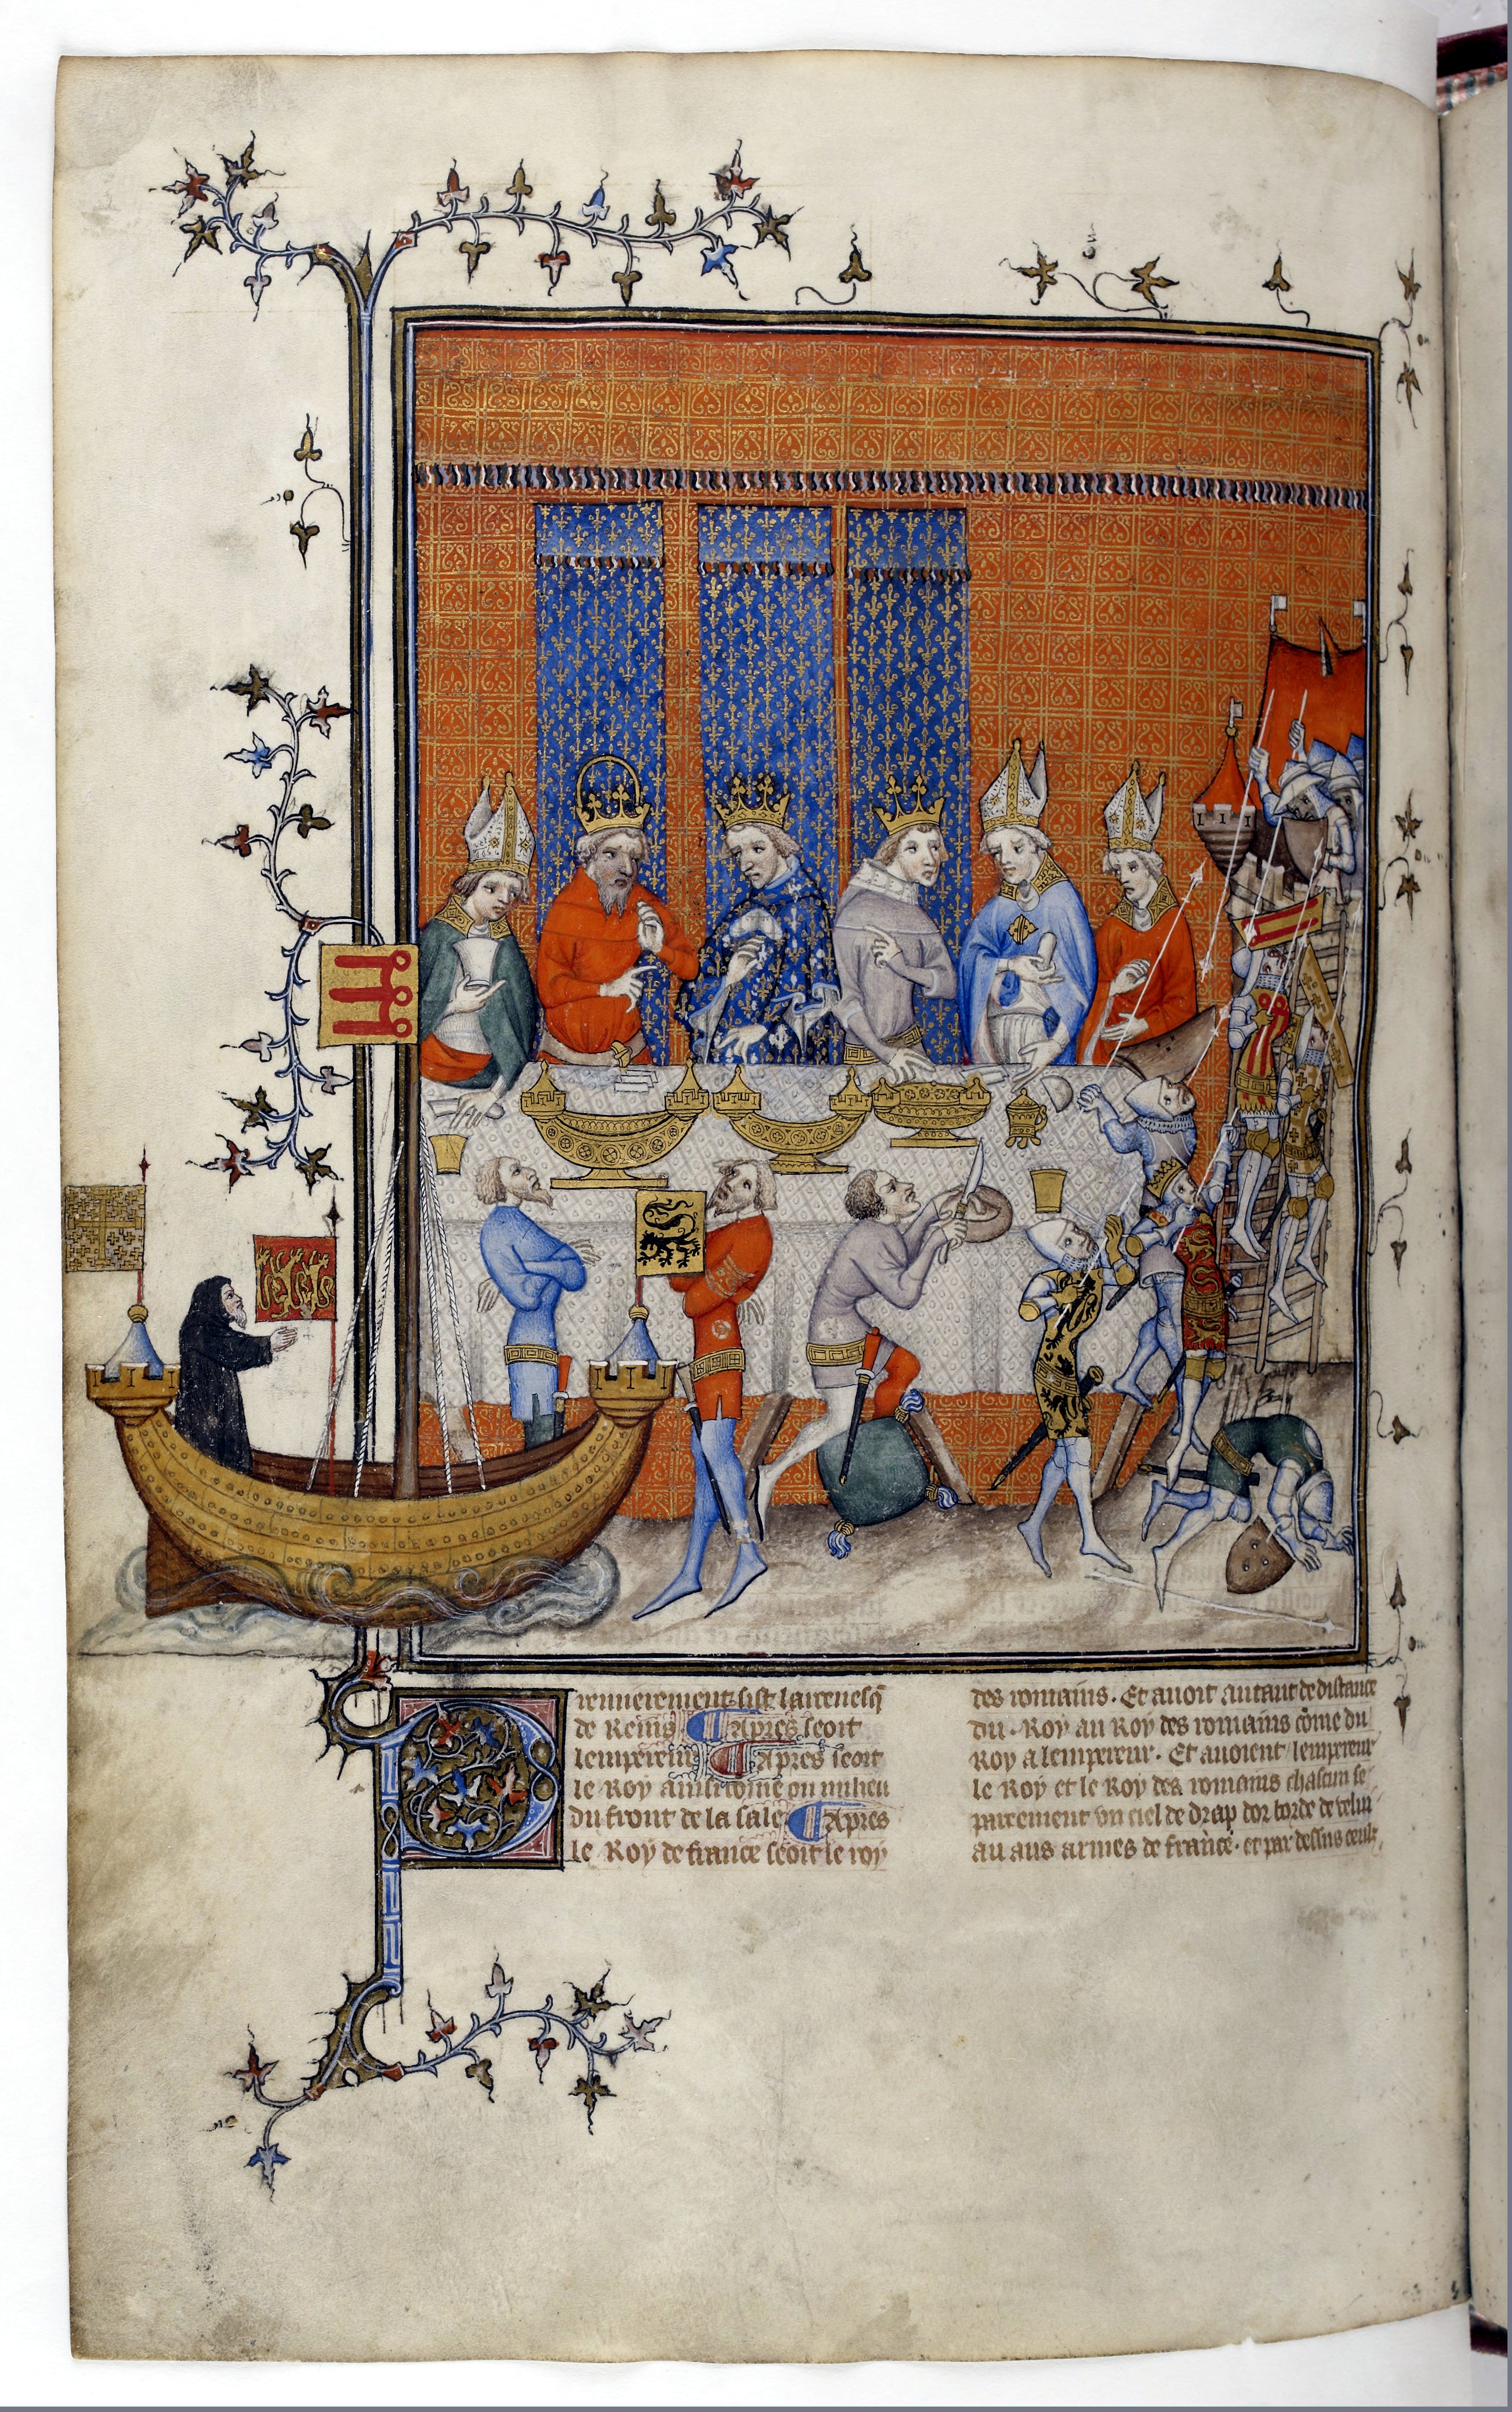 Premierement sist larcevesq̃
de Reins. Apres seoit
lempereur. Apres seoit
le Roy ainsi come ou milieu
du front de la sale. Apres
le Roy de france seoit le roy
des romains. Et avoit autant de distance
du Roy au Roy des romains cõme du
Roy a lempereur. Et avoient lempereur
le Roy et le Roy des romains chascun se
parement vn ciel de drap dor borde de veluiau
au aus armes de france. et par dessus ceulz